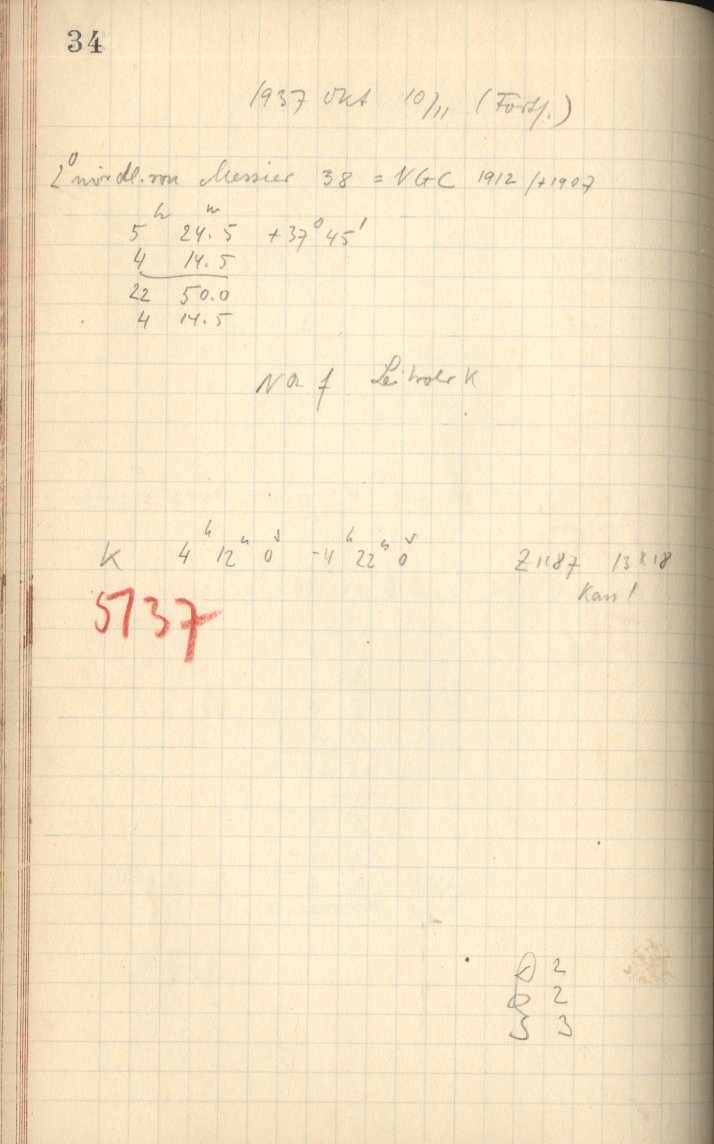 34
1937 Okt 10/11 (Forts.)
2° nördl. von Messier 38 = NGC 1912 /+1907
5h 24m.5 +37° 45'
4 14.5
22 50.0
4 14.5
Na f
K 4h 12m 0s -4h 22m 0s Z 1187 13x18
5137
D 2
Q 2
S 3